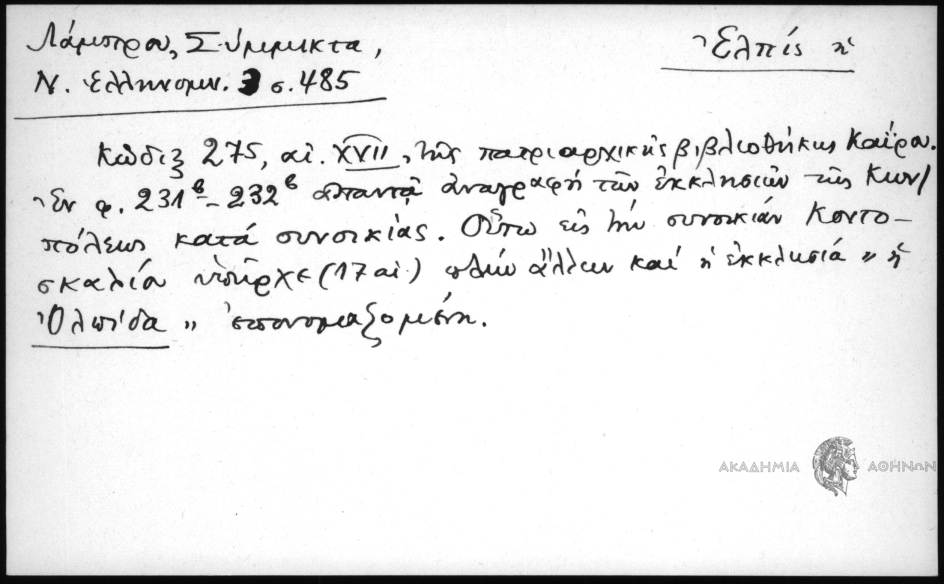 Λάμπρου, Σύμμικτα,
Ν. Ἑλληνομν. 3 σ. 485
Ἐλπίς ἡ
Κῶδιξ 275, αἰ. XVII, τῆς πατριαρχικῆς βιβλιοθήκης Καΐρου.
Ἐν φ. 231β – 232β ἀπαντᾷ ἀναγραφή τῶν ἐκκλησιῶν τῆς Κων/
πόλεως κατά συνοικίας. Οὕτω εἰς τήν συνοικίαν Κοντο-
σκαλίου ὑπῆρχε (17 αἰ.) πλήν ἄλλων καί ἡ ἐκκλησία „ ἡ
Ὀλπίδα „ ἐπονομαζομένη.
ΑΚΑΔΗΜΙΑ ΑΘΗΝΩΝ